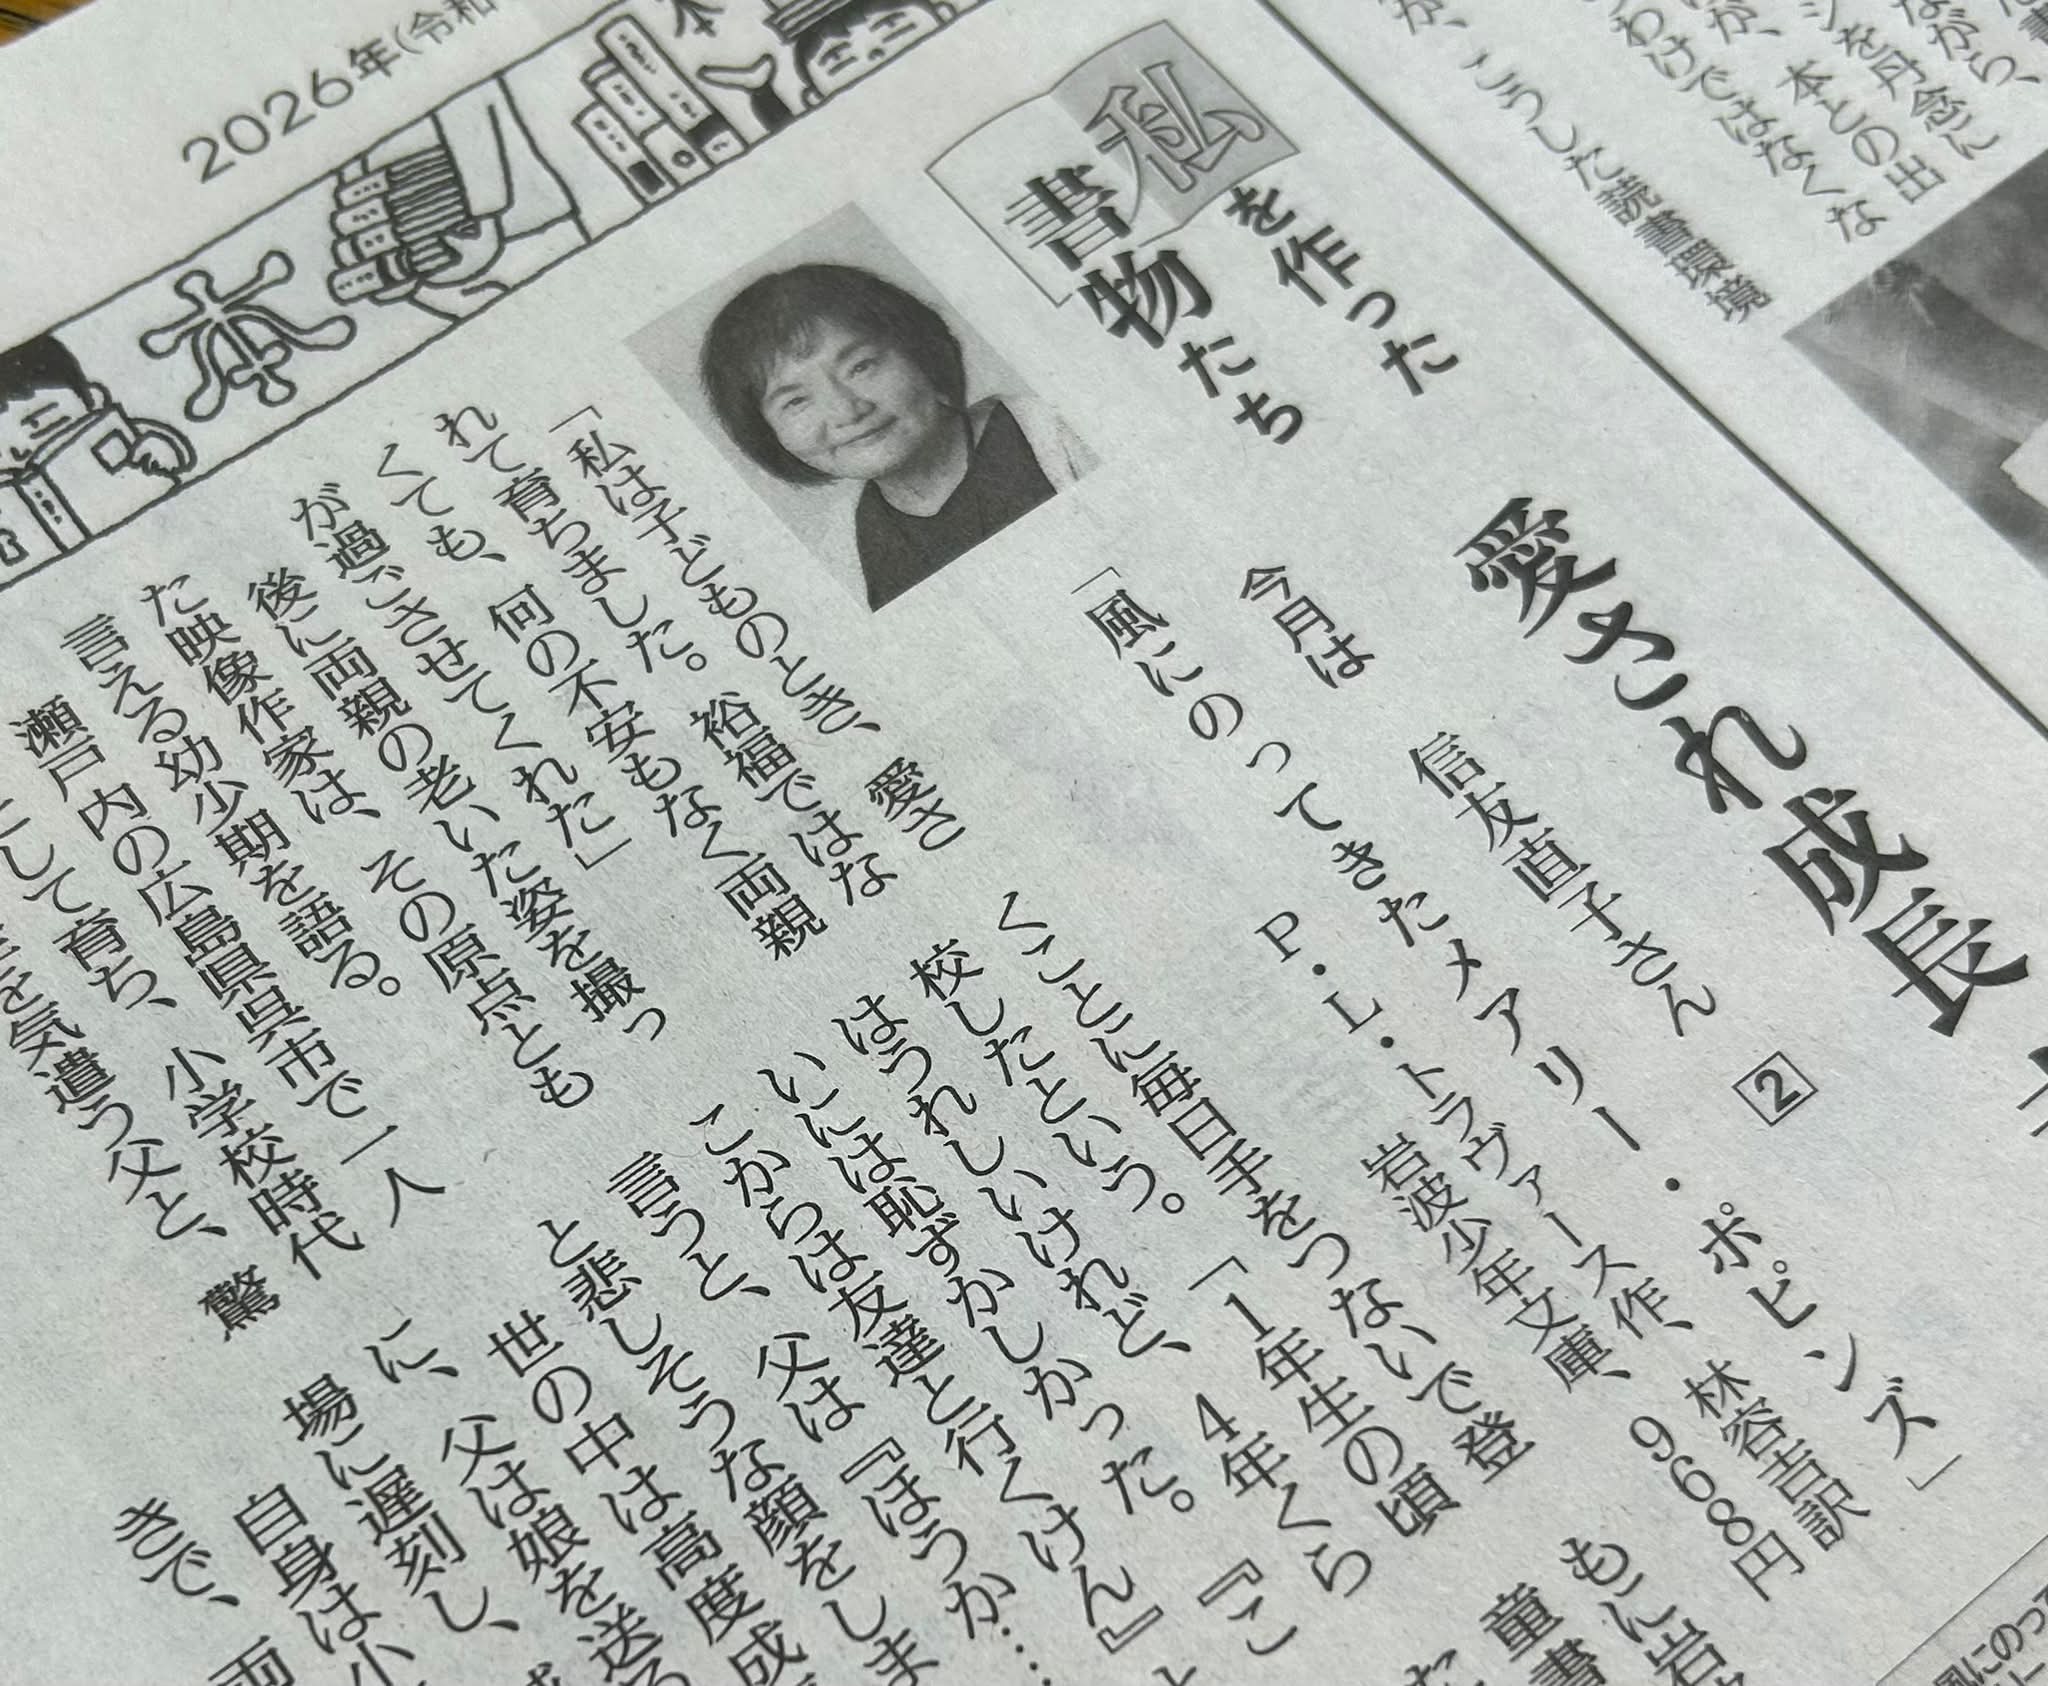 2026年(令和
本
本
私を作った
書物たち
愛され成長
今月は
信友直子さん 2
「風にのってきたメアリー・ポピンズ」
P・L・トラヴァース作、林容吉訳
岩波少年文庫、968円
「私は子どものとき、愛さ
れて育ちました。裕福ではな
くても、何の不安もなく両親
が過ごさせてくれた」
後に両親の老いた姿を撮っ
た映像作家は、その原点とも
言える幼少期を語る。
瀬戸内の広島県呉市で一人
して育ち、小学校時代
を気遣う父と、驚
くことに毎日手をつないで登
校したという。「1年生の頃
はうれしいけれど、4年くら
いには恥ずかしかった。『こ
こからは友達と行くけん』と
言うと、父は『ほうか…
と悲しそうな顔をしま
世の中は高度成
に、父は娘を送
場に遅刻し、
自身は小
きで、両
もに岩
童書
た
が、こうした読書環境
わけではなくな
が、本との出
ジを丹念に
ながら、
風にのって